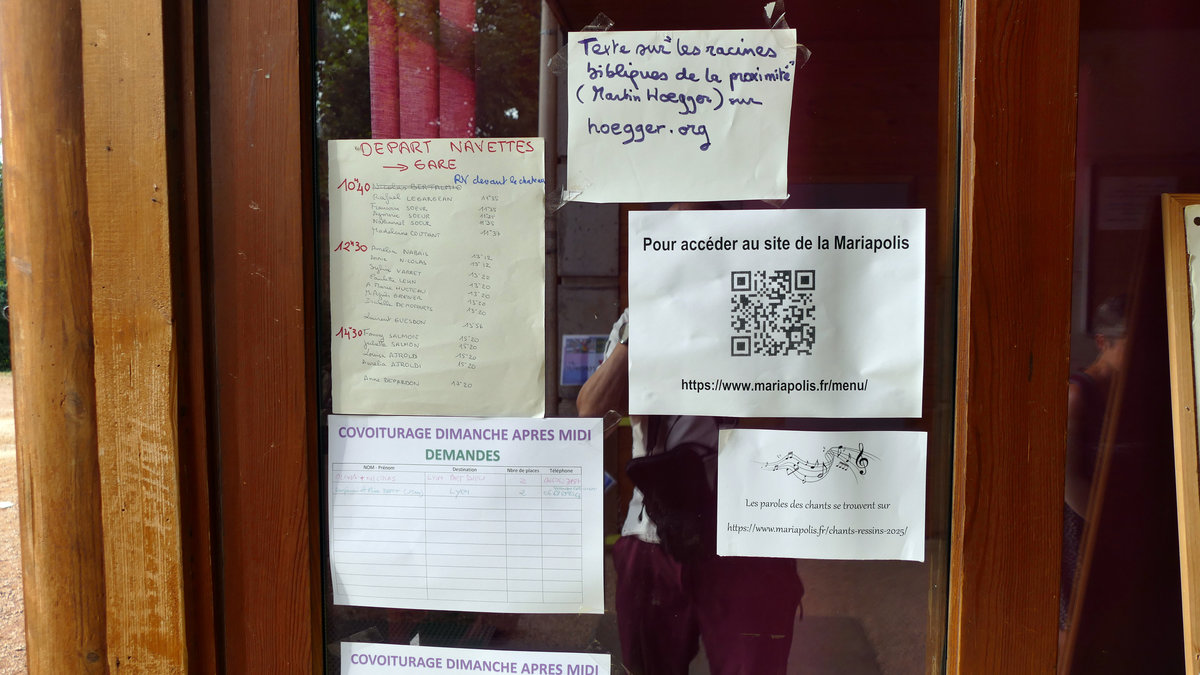 Texte sur "les racines
bibliques de la proximité"
(Martin Hoegger) sur
hoegger.org
DEPART NAVETTES
→ GARE
RV devant le chateau
10H40 Nicolas BERTALMIO
LEGARGEAN 11H35
Francois SOEUR 11H35
SOEUR
SOEUR
Madeleine COUTANT 11H37
12H30 Amélia NABAIS 13H12
NICOLAS 13H12
Sylvie VARRET 13H20
13H20
A. Marie HUCTEAU 13H20
13H20
Isabelle 13H20
Laurent GUESDON 13H56
14H30 Fanny SALMON 15H20
Juliette SALMON 15H20
Louise AJROLDI 15H20
Aurelia AJROLDI 15H20
Anne DEPARDON 17H20
Pour accéder au site de la Mariapolis
https://www.mariapolis.fr/menu/
COVOITURAGE DIMANCHE APRES MIDI
DEMANDES
NOM - Prénom Destination Nbre de places Téléphone
LYON PART DIEU 2
Lyon 2
Les paroles des chants se trouvent sur
https://www.mariapolis.fr/chants-ressins-2025/
COVOITURAGE DIMANCHE APRES MIDI